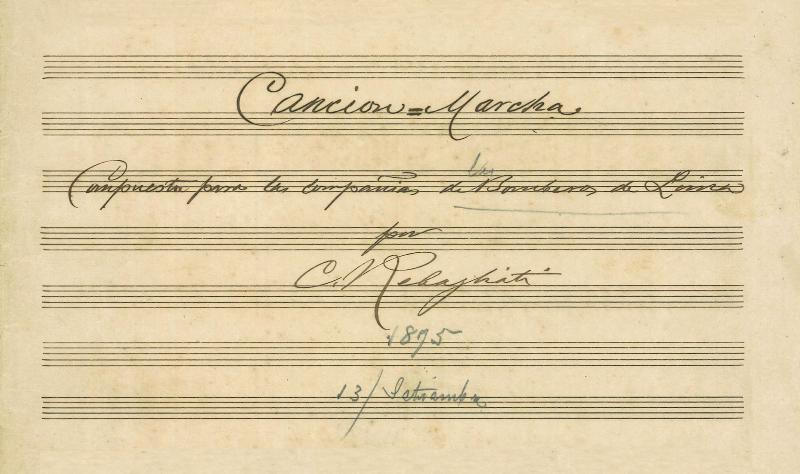 Cancion=Marcha
Conpuesta para las compañias de los Bomberos de Lima
por
C. Rebagliati
1875
13/ Setiembre